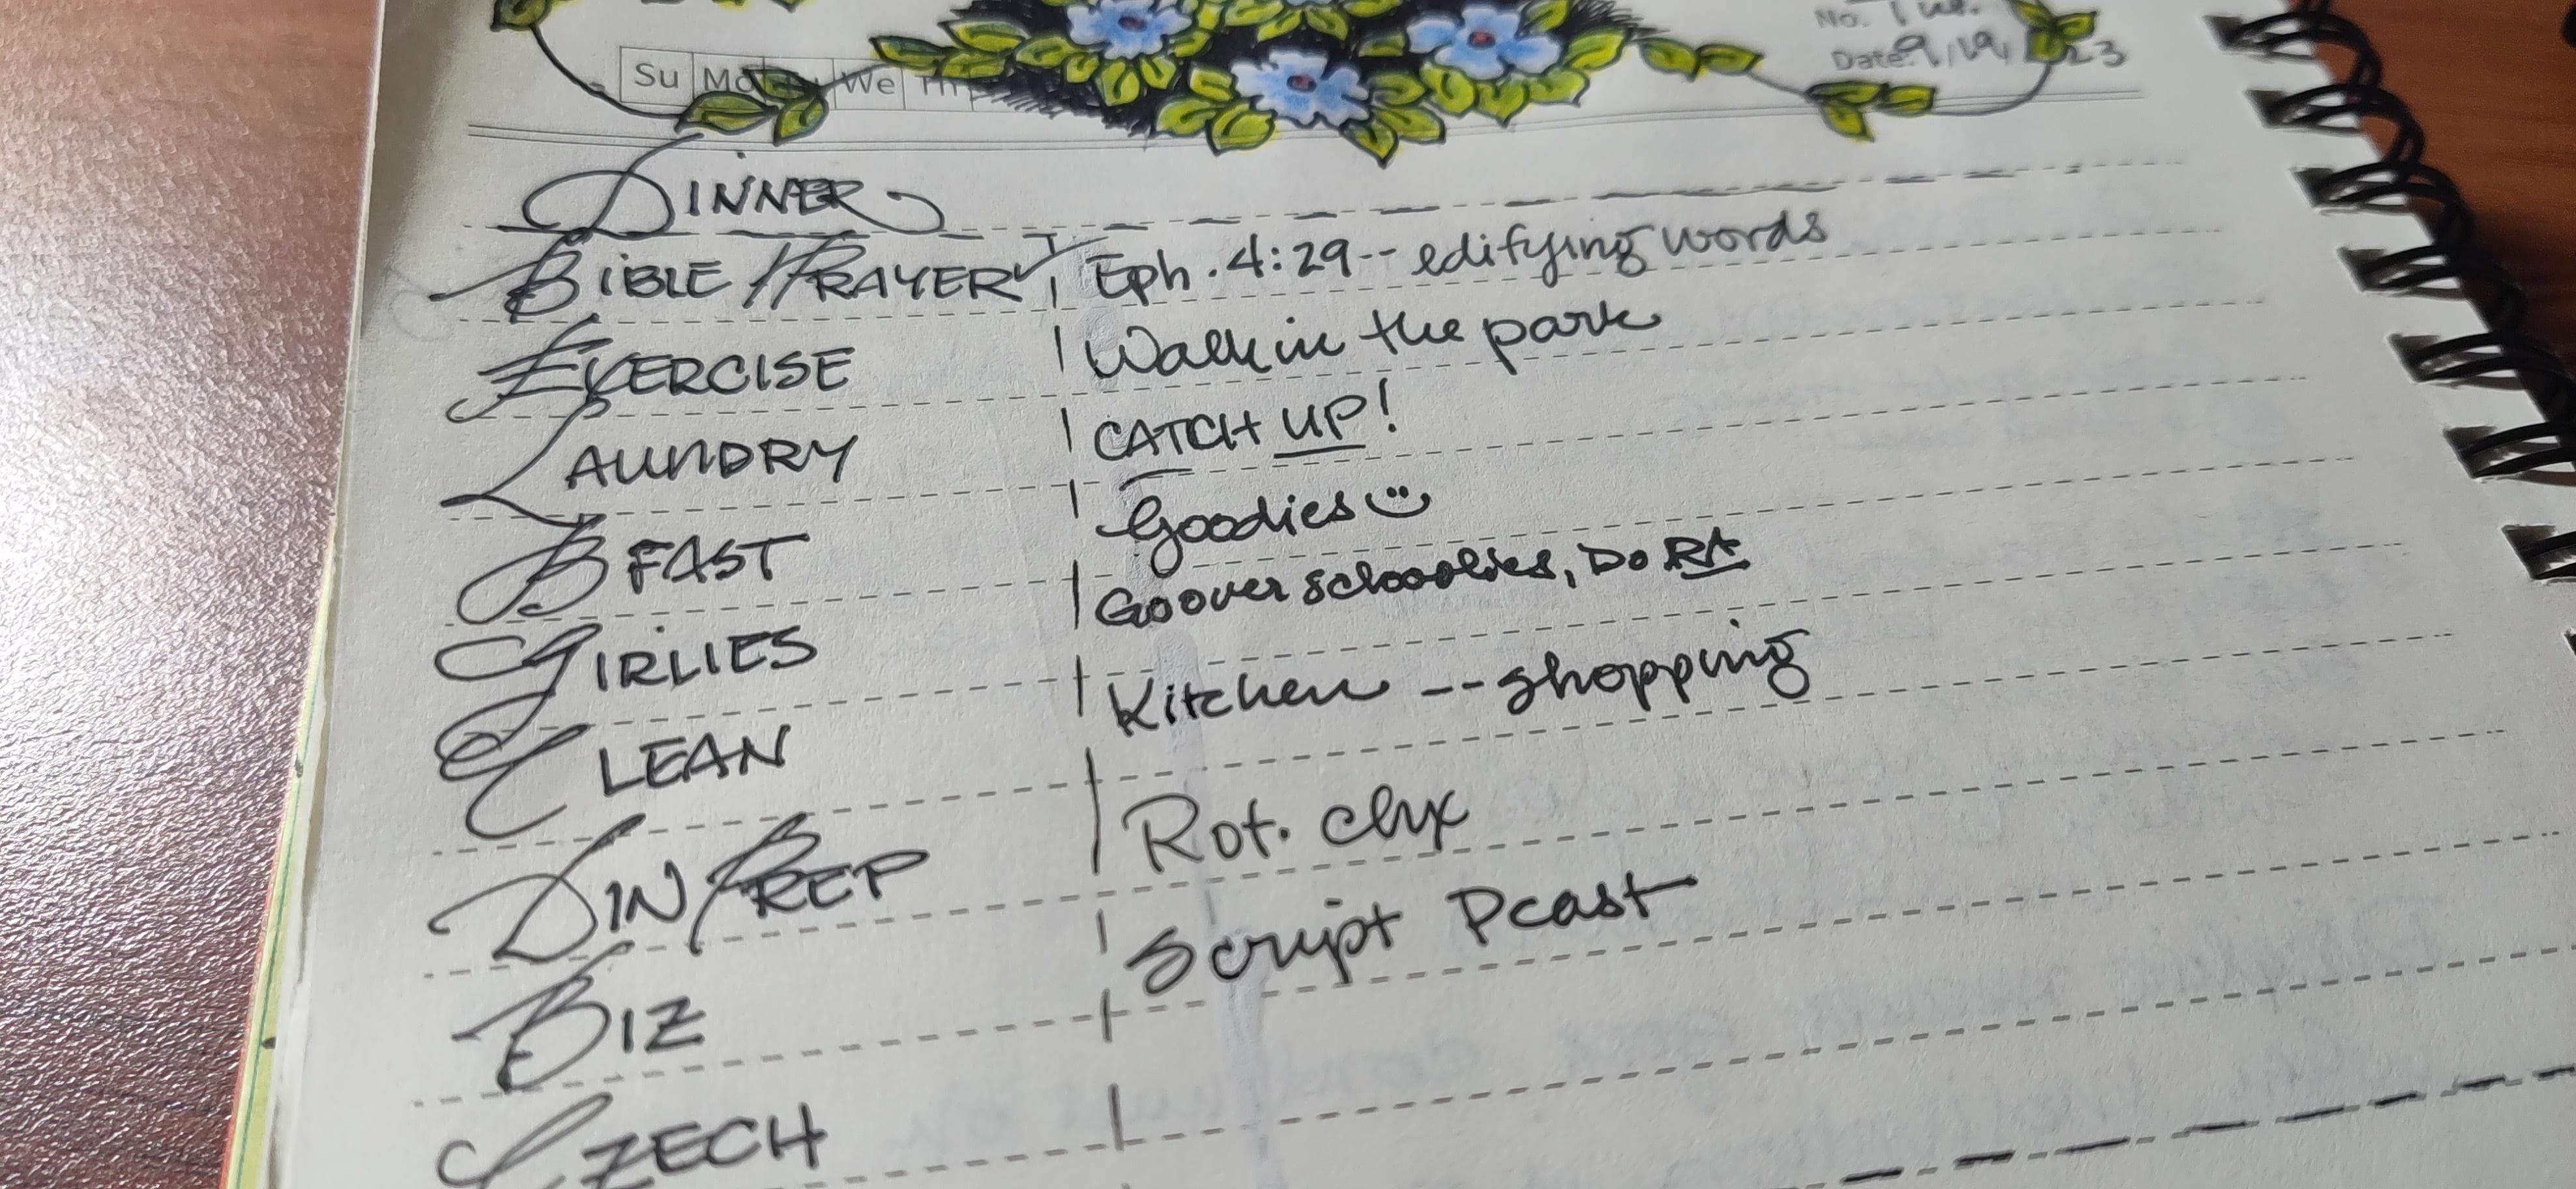 No. Tue.
Date 9/19/23
Su Mo We Th
DINNER
BIBLE/PRAYER ✓ Eph. 4:29-- edifying words
EXERCISE Walk in the park
LAUNDRY CATCH UP!
BFAST Goodies
GIRLIES Go over schoolies, Do RA
CLEAN Kitchen -- shopping
DIN PREP Rot. chx
BIZ Script Pcast
CZECH